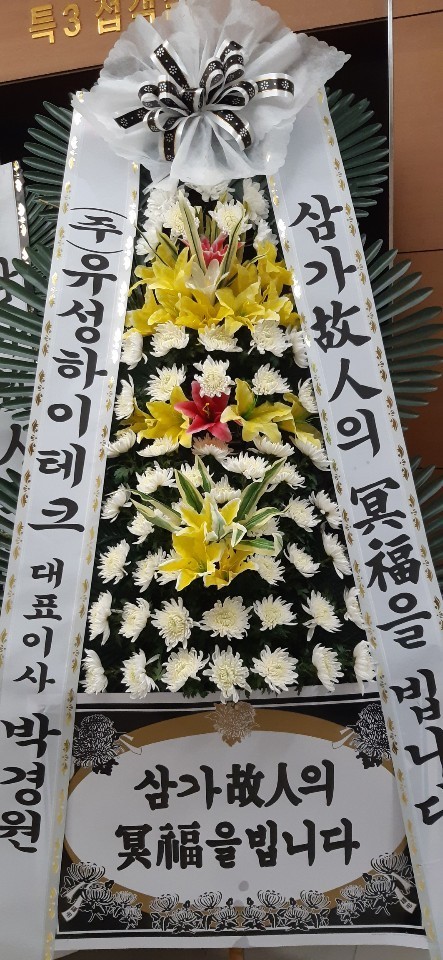 특3 접객
(주)유성하이테크 대표이사 박경원
삼가故人의 冥福을 빕니다
삼가故人의
冥福을빕니다